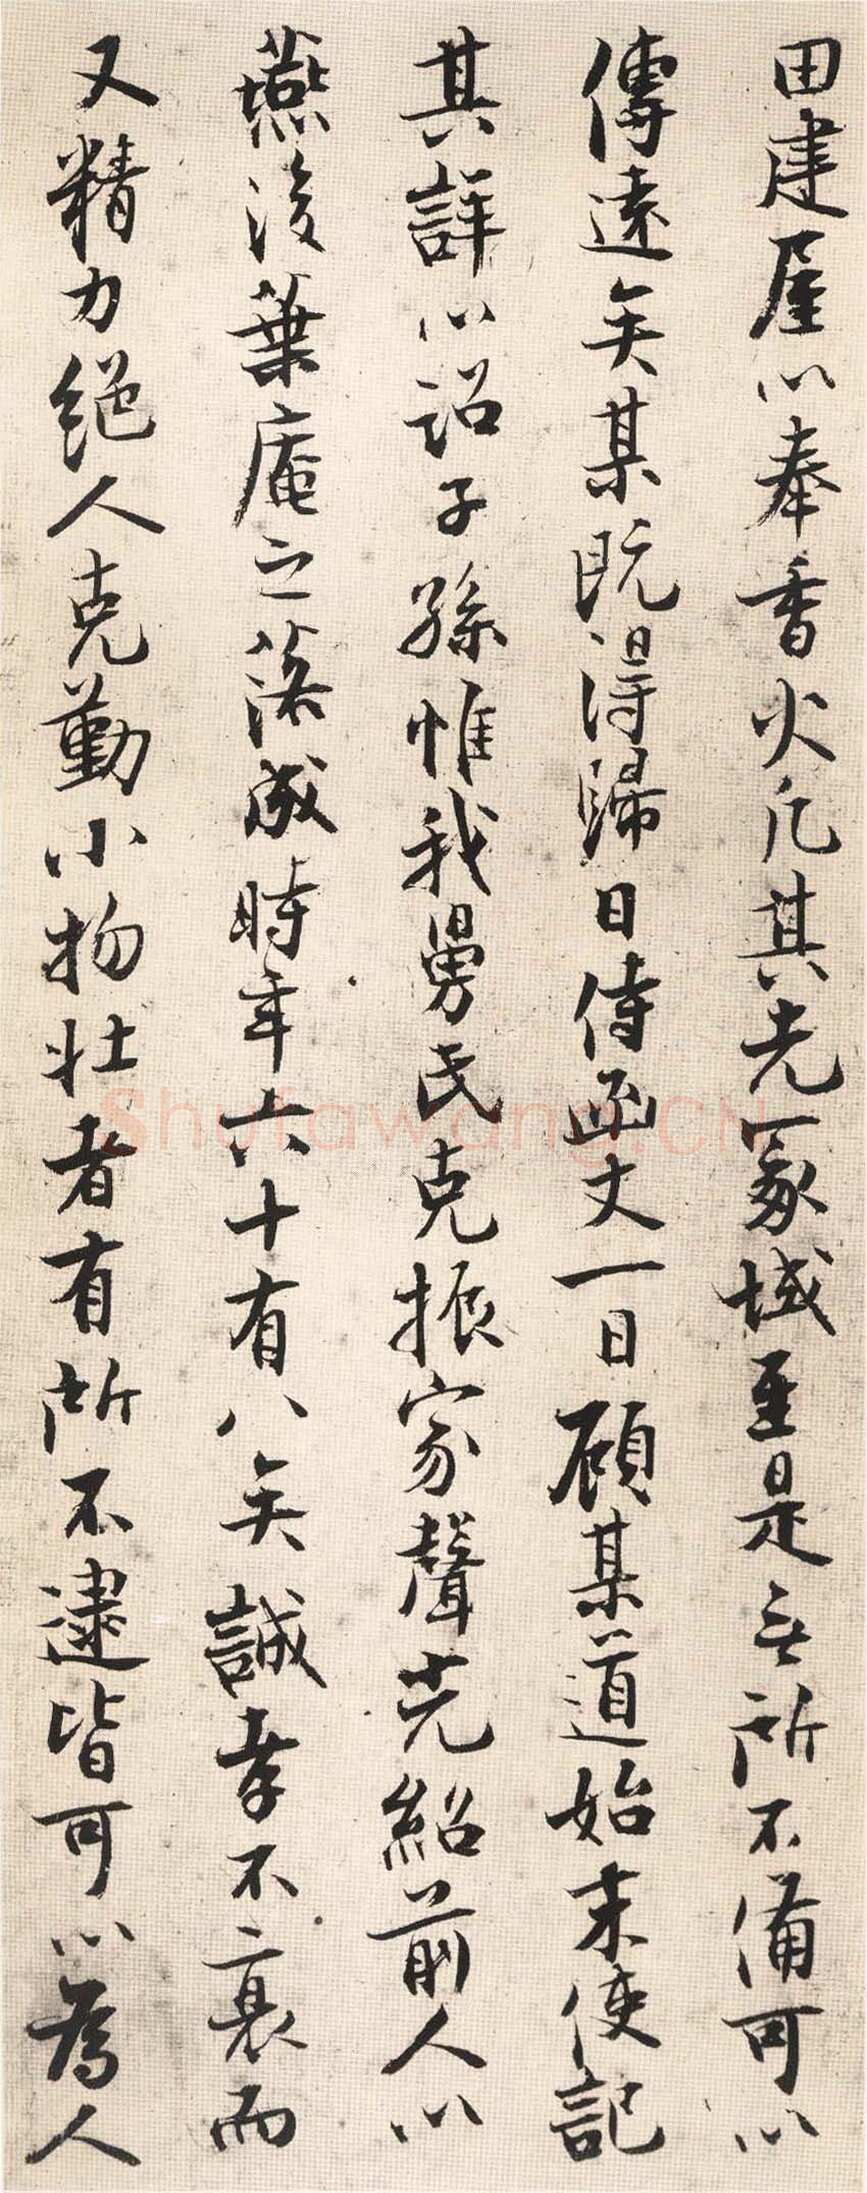 田建屋以奉香火凡其先冢域至是無所不備可以
傳遠矣某既得歸日侍函丈一日顧某道始末使記
其詳以詔子孫惟我舅氏克振家聲光紹前人以
燕後葉庵之落成時年六十有八矣誠孝不衰而
又精力絕人克勤小物壯者有所不逮皆可以為人
Shufawang.CN